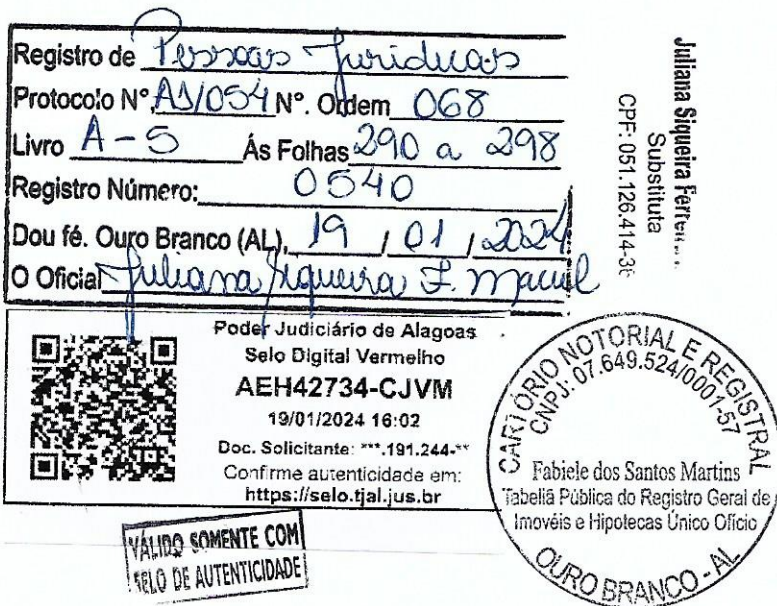 Registro de Pessoas Juridicas
Protocolo Nº A1/054 Nº. Ordem 068
Livro A-5 Ás Folhas 290 a 298
Registro Número: 0540
Dou fé. Ouro Branco (AL), 19 / 01 / 2024
O Oficial Juliana Siqueira F. Maciel
Juliana Siqueira
Substituta
CPF: 051.126.414-3
Poder Judiciário de Alagoas
Selo Digital Vermelho
AEH42734-CJVM
19/01/2024 16:02
Doc. Solicitante: ***.191.244-**
Confirme autenticidade em:
https://selo.tjal.jus.br
VÁLIDO SOMENTE COM
SELO DE AUTENTICIDADE
CARTÓRIO NOTORIAL E REGISTRAL
CNPJ: 07.649.524/0001-57
Fabiele dos Santos Martins
Tabeliã Pública do Registro Geral de
Imovéis e Hipotecas Único Ofício
OURO BRANCO - AL